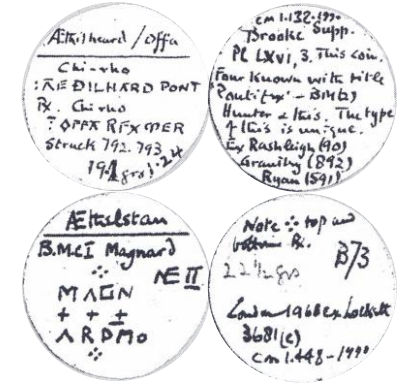 Æthilheard / Offa
Chi-rho
:ÆÐILHARD PONT
Rx. Chi rho
OFFA REX MER
Struck 792.793
19.1 grs 1.24
CM 1.132-1990
Brooke Supp.
Pl LXVI, 3. This coin.
Four known with title
'Pontifex' - BM(2)
Hunter & this. The type
of this is unique.
Ex Rashleigh (90)
Grantley (892)
Ryan (591)
Æthelstan
B.M.C I Magnard
NE II
MAGN
+ + +
ARDMo
Note ⁘ top and
bottom Rx.
B/3
22 1/2 grs
London 1968 ex Lockett
3681(c)
CM 1.448-1990